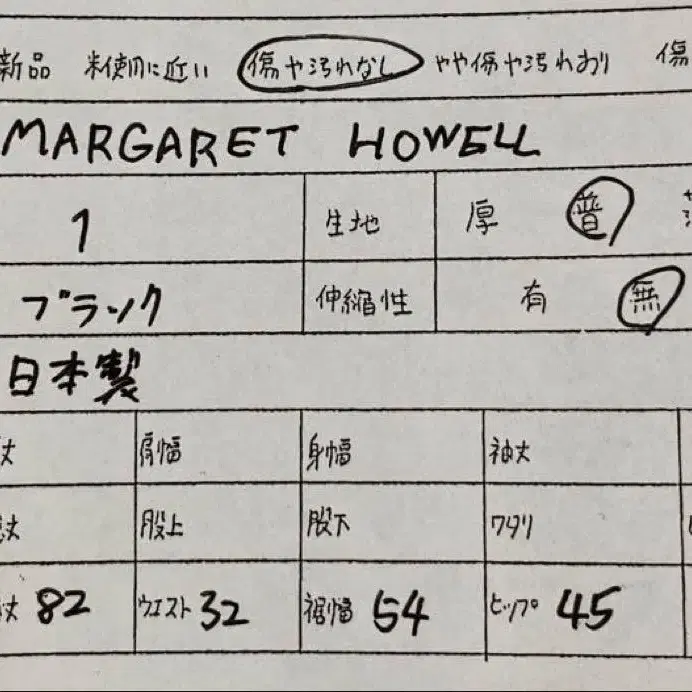 新品 未使用に近い 傷や汚れなし やや傷や汚れあり 傷
MARGARET HOWELL
1 生地 厚 普
ブラック 伸縮性 有 無
日本製
丈 肩幅 身幅 袖丈
丈 股上 股下 ワタリ
丈 82 ウエスト 32 裾幅 54 ヒップ 45